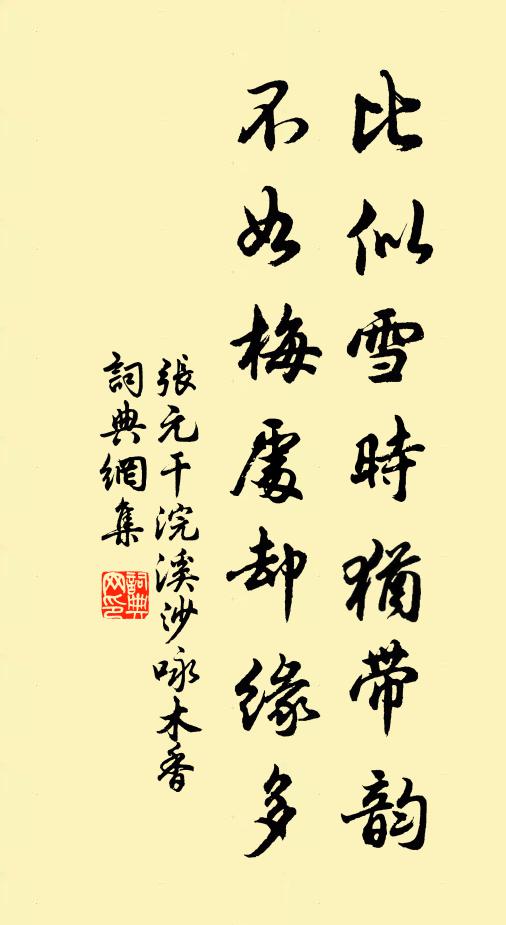 比似雪時猶带韵
不如梅處却緣多
張元干浣溪沙咏木香
詞典網集
詞典网印